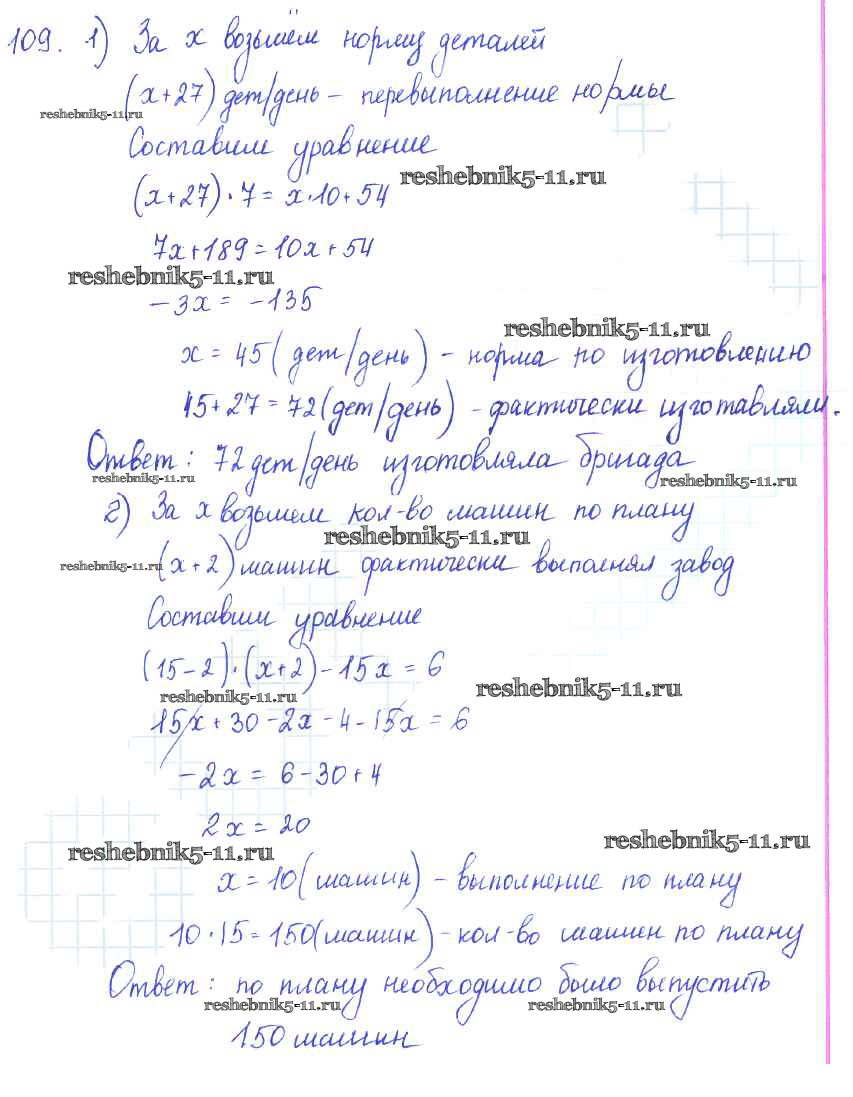 109. 1) За x возьмём норму деталей
(x+27) дет/день – перевыполнение нормы
reshebnik5-11.ru
Составим уравнение
reshebnik5-11.ru
(x+27)·7=x·10+54
7x+189=10x+54
reshebnik5-11.ru
-3x = -135
reshebnik5-11.ru
x = 45 (дет/день) - норма по изготовлению
45+27=72 (дет/день) - фактически изготавляли.
Ответ: 72 дет/день изготовляла бригада
reshebnik5-11.ru reshebnik5-11.ru
2) За x возьмем кол-во машин по плану
reshebnik5-11.ru
reshebnik5-11.ru (x+2) машин фактически выполнял завод
Составим уравнение
(15-2)·(x+2)-15x = 6
reshebnik5-11.ru reshebnik5-11.ru
15x+30-2x-4-15x=6
-2x = 6-30+4
2x = 20
reshebnik5-11.ru reshebnik5-11.ru
x=10 (машин) - выполнение по плану
10·15=150 (машин) - кол-во машин по плану
Ответ: по плану необходимо было выпустить
reshebnik5-11.ru reshebnik5-11.ru
150 машин